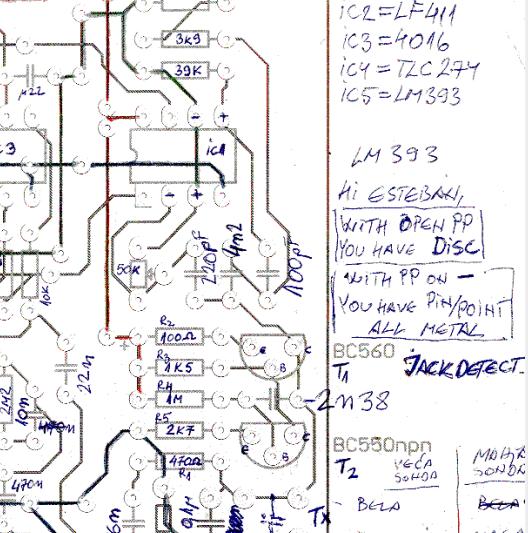 iC2 = LF411
iC3 = 4016
iC4 = TLC274
iC5 = LM393
LM 393
Hi ESTEBAN,
WITH OPEN PP
YOU HAVE DISC
WITH PP ON -
YOU HAVE PIN/POINT
ALL METAL
BC560
T1
JACKDETECT.
-2n38
BC550npn
T2
VEĆA
SONDA
MANJA
SONDA
BELA
BELA
3K9
39K
µ22
3
ic1
-
+
-
+
50K
220pF
4m2
100pF
10K
22n
R2
100Ω
R3
1K5
R4
1M
R5
2K7
470Ω
R1
e
C
B
e
C
B
2M2
10n
470n
470n
6n
0,1µ
Tx